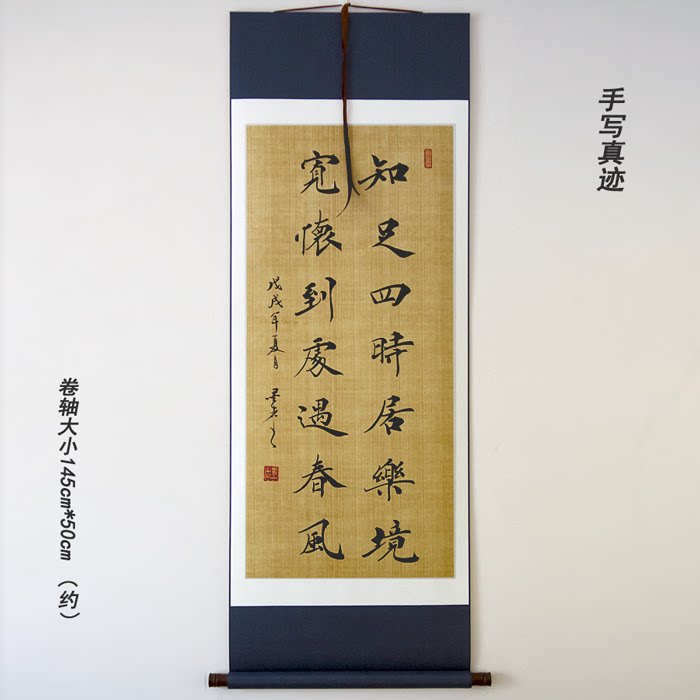 知足四時居樂境
寬懷到處遇春風
戊戌年夏月
手写真迹
卷轴大小145cm*50cm（约）